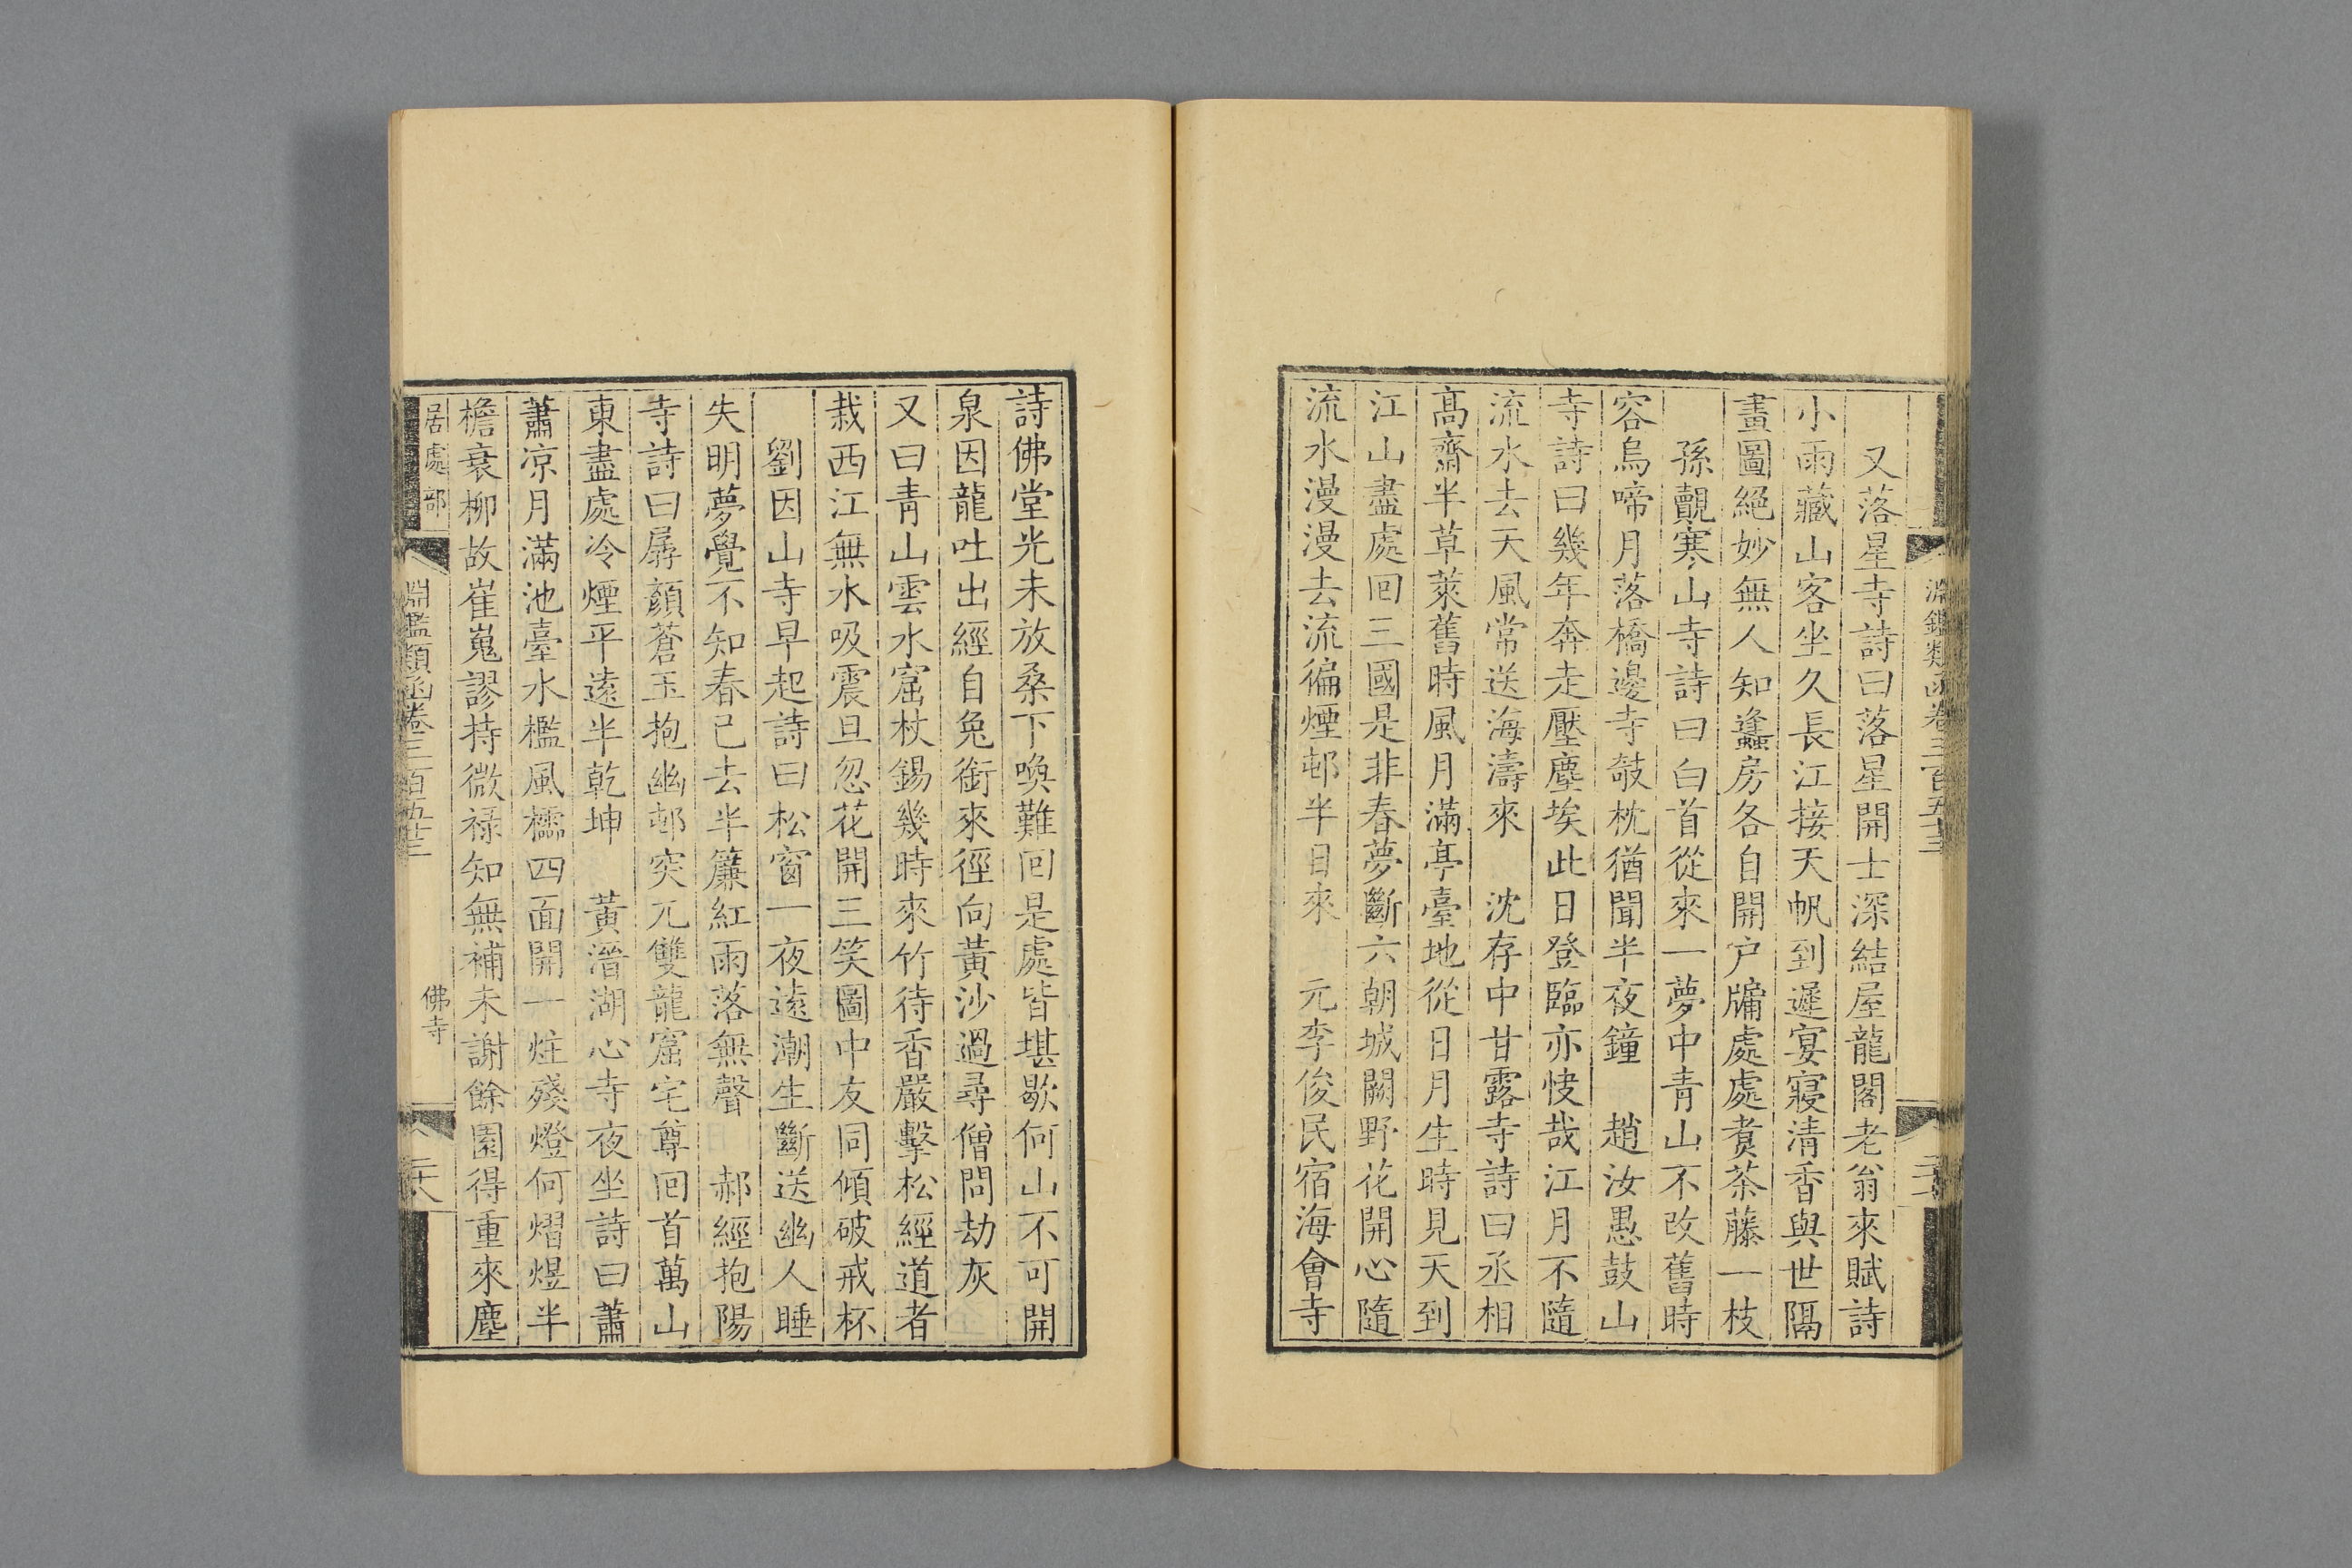 淵鑑類函卷三百五十三
又落星寺詩曰落星開士深結屋龍閣老翁來賦詩
小雨藏山客坐久長江接天帆到遲宴寢清香與世隔
畫圖絕妙無人知蠭房各自開户牖處處煑茶藤一枝
孫覿寒山寺詩曰白首從來一夢中青山不改舊時
容烏啼月落橋邊寺攲枕猶聞半夜鐘　趙汝愚鼓山
寺詩曰幾年奔走壓塵埃此日登臨亦快哉江月不隨
流水去天風常送海濤來　沈存中甘露寺詩曰丞相
髙齋半草萊舊時風月滿亭臺地從日月生時見天到
江山盡處回三國是非春夢斷六朝城闕野花開心隨
流水漫漫去流徧煙邨半日來　元李俊民宿海會寺
詩佛堂光未放桑下喚難回是處皆堪歇何山不可開
泉因龍吐出經自兔銜來徑向黃沙過尋僧問劫灰
又曰青山雲水窟杖錫幾時來竹待香嚴擊松經道者
栽西江無水吸震旦忽花開三笑圖中友同傾破戒杯
劉因山寺早起詩曰松窗一夜遠潮生斷送幽人睡
失明夢覺不知春已去半簾紅雨落無聲　郝經抱陽
寺詩曰孱顏蒼玉抱幽邨突兀雙龍窟宅尊回首萬山
東盡處冷煙平遠半乾坤　黃溍湖心寺夜坐詩曰蕭
蕭凉月滿池臺水檻風櫺四面開一炷殘燈何熠煜半
檐衰柳故崔嵬謬持微祿知無補未謝餘園得重來塵
居處部
淵鑑類函卷三百五十三
佛寺
二十八